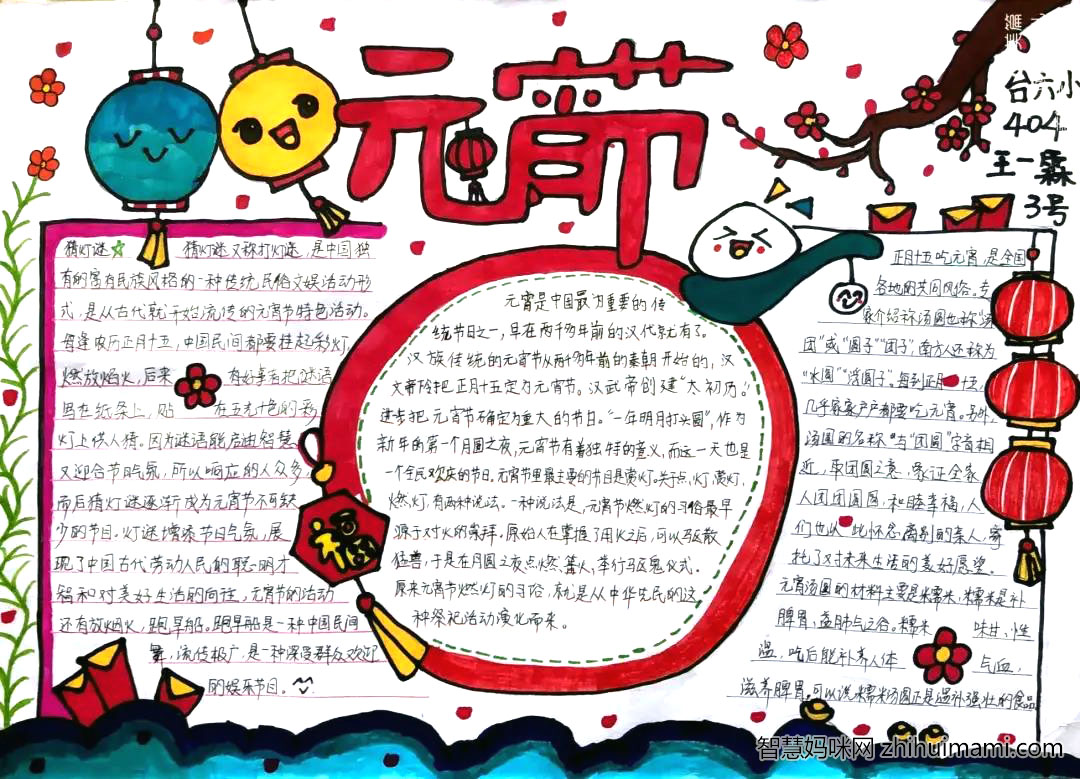 元宵节
台六小
404
王一霖
3号
猜灯谜 猜灯谜又称打灯谜,是中国独
有的富有民族风格的一种传统民俗文娱活动形
式,是从古代就开始流传的元宵节特色活动。
每逢农历正月十五,中国民间都要挂起彩灯,
燃放焰火,后来 有好事者把谜语
写在纸条上,贴 在五光十色的彩
灯上供人猜。因为谜语能启迪智慧
又迎合节日气氛,所以响应的人众多
而后猜灯谜逐渐成为元宵节不可缺
少的节目。灯谜增添节日气氛,展
现了中国古代劳动人民的聪明才
智和对美好生活的向往,元宵节的活动
还有放烟火,跑旱船。跑旱船是一种中国民间
舞,流传极广,是一种深受群众欢迎
的娱乐节目。
元宵是中国最为重要的传
统节日之一,早在两千多年前的汉代就有了。
汉族传统的元宵节从两千多年前的秦朝开始的,汉
文帝令把正月十五定为元宵节。汉武帝创建“太初历”
进步把元宵节确定为重大的节日。“一年明月打头圆”,作为
新年的第一个月圆之夜,元宵节有着独特的意义,而这一天也是
一个全民欢庆的节日,元宵节里最主要的节目是赏灯。关于点灯,
燃灯,有两种说法。一种说法是,元宵节燃灯的习俗最早
源于对火的崇拜。原始人在掌握了用火之后,可以驱散
猛兽,于是在月圆之夜点燃篝火,举行驱鬼仪式。
原来元宵节燃灯的习俗,就是从中华先民的这
种祭祀活动演化而来。
福
正月十五吃元宵,是全国
各地的共同风俗。专
家介绍称汤圆也称“汤
团”或“圆子”“团子”,南方人还称为
“水圆”“浮圆子”。每到正月十五,
几乎家家户户都要吃元宵。另外,
汤圆的名称与“团圆”字音相
近,取团圆之意,象征全家
人团团圆圆,和睦幸福,人
们也以此怀念离别的亲人,寄
托了对未来生活的美好愿望。
元宵汤圆的材料主要是糯米,糯米是补
脾胃,益肺气之谷。糯米 味甘,性
温,吃后能补养人体 气血,
滋养脾胃,可以说糯米汤圆正是温补强壮的食品
智慧妈咪网 zhihuimami.com